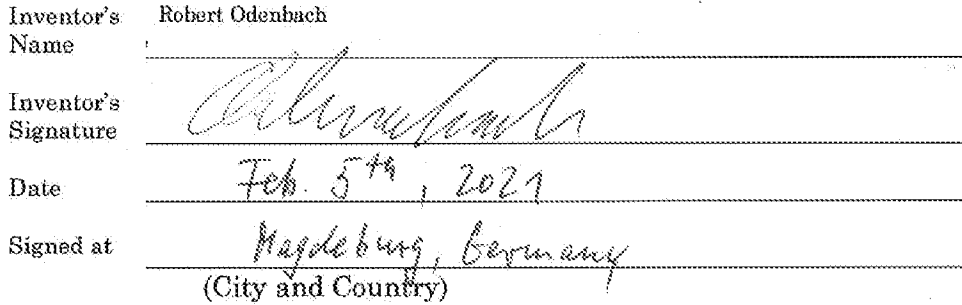 Inventor's Name Robert Odenbach
Inventor's Signature Odenbach
Date Feb. 5th, 2021
Signed at Magdeburg, Germany
(City and Country)